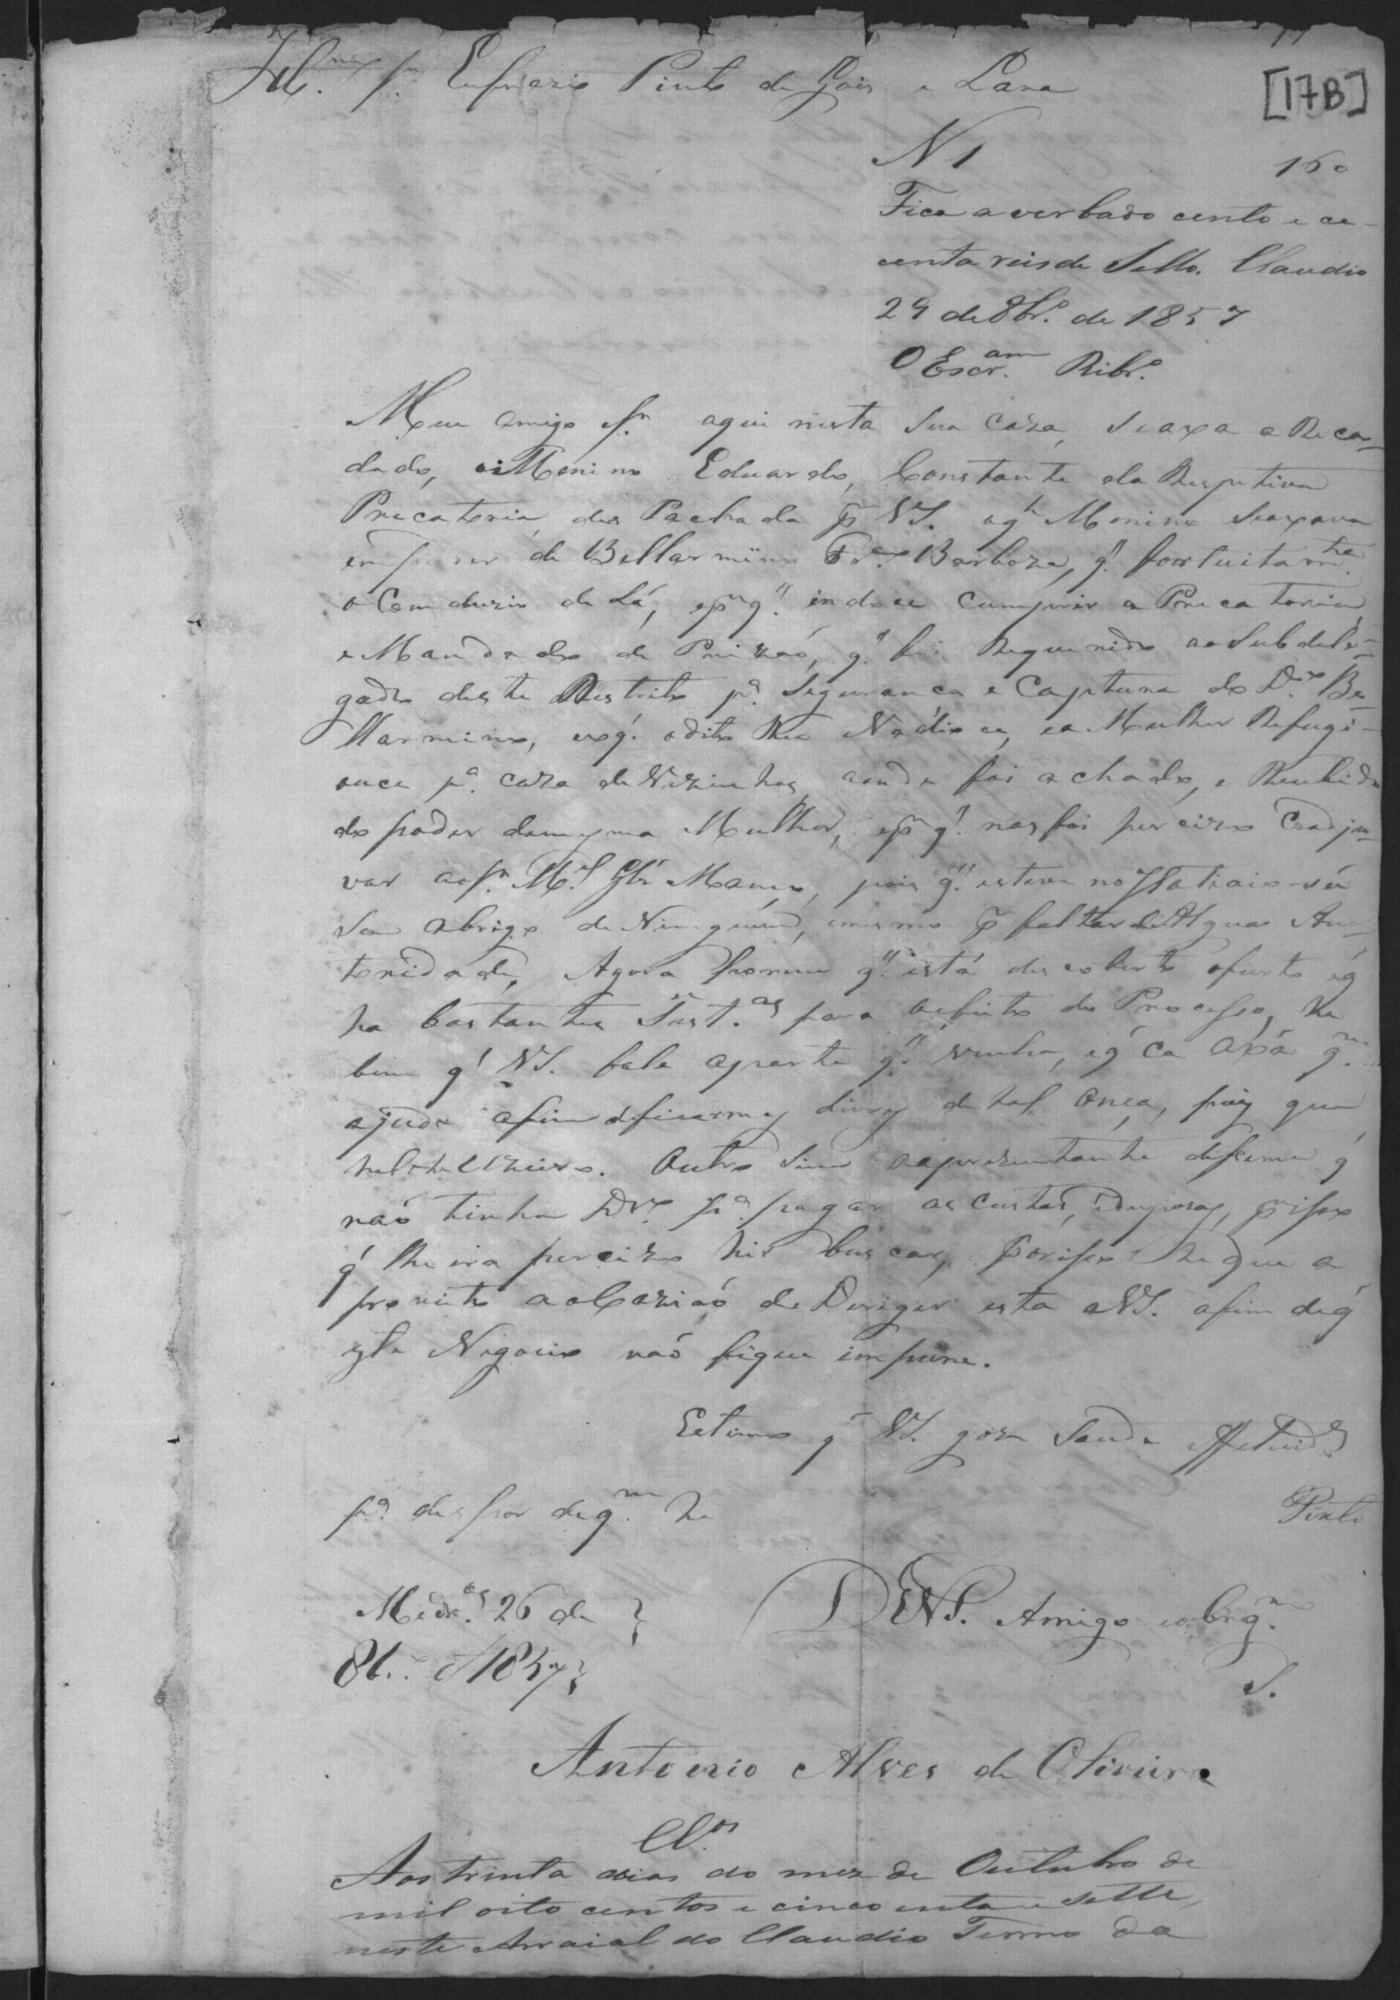 Illmo Sr. Eufrazio Pinto de Gois e Lara
[17B]
N 1 160
Fica averbado cento e ce-
centa reis de Sello. Claudio
29 de 8br.o de 1857
O Escr.am Ribr.o
Meu amigo Sr. aqui nesta sua caza, seaxa a Reca-
dado, o Menino Eduardo, Constante da Respetiva
Precatoria des Pachada p.r VS. o q.l Menino seaxava
em poder de Bellarmino Barboza, q.' fortuitam.te
o Comduzio de Lá, e p.r q.' indoce cumprir a Precatoria
e Mandado de Prizaõ, q.' foi Requerido ao Subdele-
gado deste Destrito p.a Siguranca e Captura do D.o Be-
llarmino, e a Mulher Refugi-
ouce p.a caza de Vizinhos aonde foi achado, e Recebido
do poder da mesma Mulher, e p.r q.' nos foi percizo Coadju-
var ao Sr. M.el
sem abrigo de Ninguem, mesmo p.r faltar de Alguas Au-
toridade, Agora porem q.' está descoberto o furto e q
ha bastantes Test.as para o efeito do Processo, he
bom q.' VS. fale a parte q.' venha, e q' ca axá q.m
ajude afim de ficarmos livres de tal Onça, pois que
Outro sim o aprezentante dice me q'
naõ tinha Dr.o p.a pagar as custas, e despezas, p.r isso
q' lhe era percizo hir buscar, Por isso he que a
proveito a oCaziaõ de Deriger esta a VS. afim de q'
este Negocio naõ fique impune.
Estimo q' VS. goze Saude e Felicid.es
p.a despor de q.m he
Pinto
DE VS. Amigo e obrg.mo
S.
Medr.os 26 de
8br.o d 1857
Antonio Alves de Oliveira
Cl.os
Aos trinta dias do mez de Outubro de
mil oito centos e cincoenta e sette,
neste Arraial do Claudio Termo da